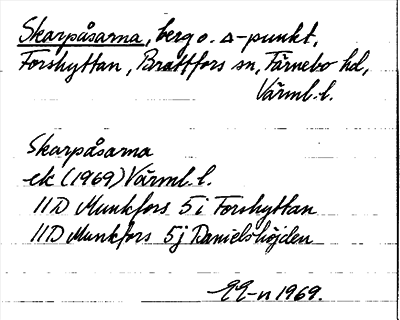 Skarpåsarna, berg o. △-punkt,
Forshyttan, Brattfors sn, Färnebo hd,
Värml. l.
Skarpåsarna
ek (1969) Värml. l.
11D Munkfors 5i Forshyttan
11D Munkfors 5j Danielshöjden
1969.